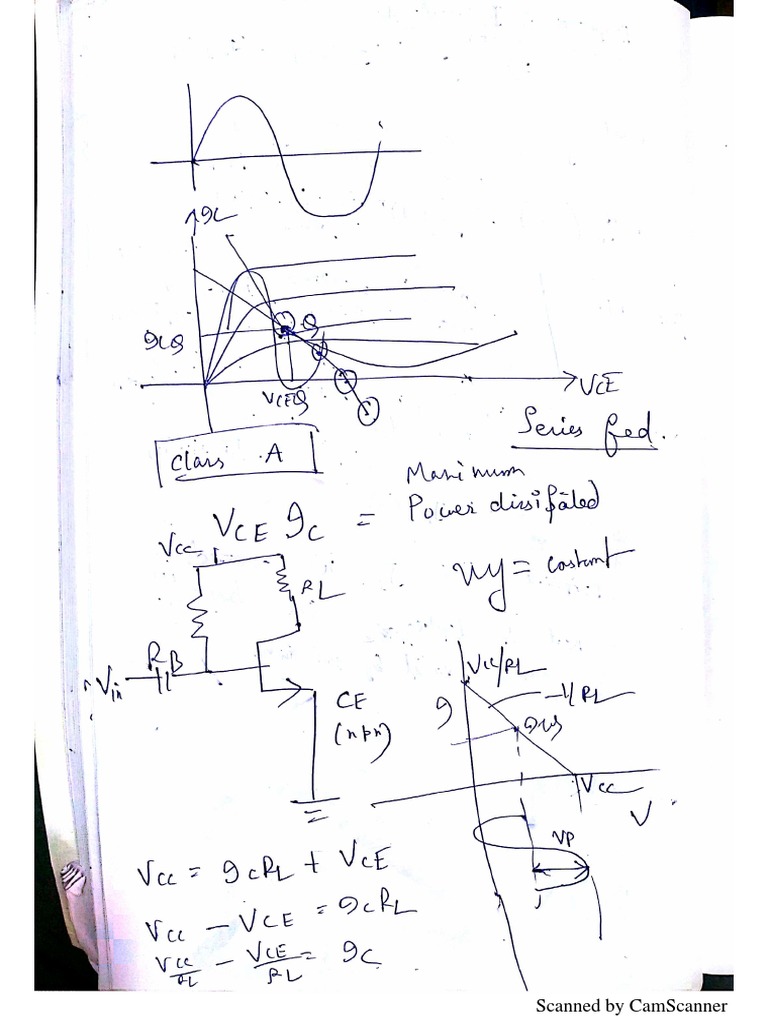 IC
ICQ
Q
VCEQ
VCE
Series fed.
Class A
VCE IC = Maximum Power dissipated
xy = costant
Vcc
RL
RB
Vin
CE
(npn)
Vcc/RL
-1/RL
I
ICQ
Vcc
V
VP
Vcc = ICRL + VCE
Vcc - VCE = ICRL
Vcc/RL - VCE/RL = IC
Scanned by CamScanner